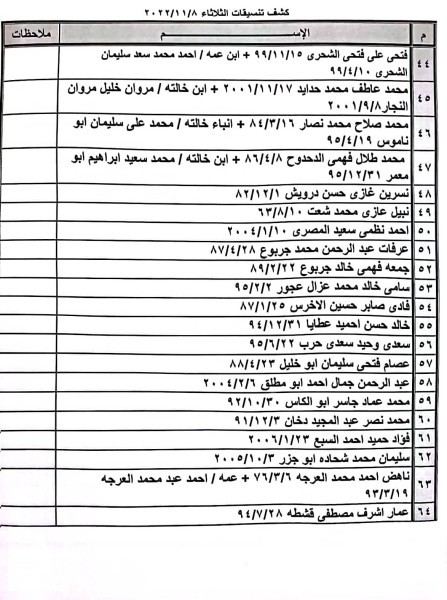 كشف تنسيقات الثلاثاء ٢٠٢٢/١١/٨
م الإســـــــم ملاحظات
٤٤ فتحى على فتحى الشحرى ٩٩/١١/١٥ + ابن عمه / احمد محمد سعد سليمان
الشحرى ٩٩/٤/١٠
٤٥ محمد عاطف محمد حدايد ٢٠٠١/١١/١٧ + ابن خالته / مروان خليل مروان
النجار ٢٠٠١/٩/٨
٤٦ محمد صلاح محمد نصار ٨٤/٣/١٦ + انباء خالته / محمد على سليمان ابو
ناموس ٩٥/٤/١٩
٤٧ محمد طلال فهمى الدحدوح ٨٦/٤/٨ + ابن خالته / محمد سعيد ابراهيم ابو
معمر ٩٥/١٢/٣١
٤٨ نسرين غازى حسن درويش ٨٢/١٢/١
٤٩ نبيل عازى محمد شعت ٦٣/٨/١٠
٥٠ احمد نظمى سعيد المصرى ٢٠٠٤/١/١٠
٥١ عرفات عبد الرحمن محمد جربوع ٨٧/٤/٢٨
٥٢ جمعه فهمى خالد جربوع ٨٩/٢/٢٢
٥٣ سامى خالد محمد عزال عجور ٩٥/٢/٢
٥٤ فادى صابر حسين الاخرس ٨٧/١/٢٥
٥٥ خالد حسن احميد عطايا ٩٤/١٢/٣١
٥٦ سعدى وحيد سعدى حرب ٩٥/٦/٢٢
٥٧ عصام فتحى سليمان ابو خليل ٨٨/٤/٢٣
٥٨ عبد الرحمن جمال احمد ابو مطلق ٢٠٠٤/٢/٦
٥٩ محمد عماد جاسر ابو الكاس ٩٢/١٠/٣٠
٦٠ محمد نصر عبد المجيد دخان ٩١/١٢/٣
٦١ فؤاد حميد احمد السبع ٢٠٠٦/١/٢٣
٦٢ سليمان محمد شحاده ابو جزر ٢٠٠٥/١٠/٣
٦٣ ناهض احمد محمد العرجه ٧٦/٣/٦ + عمه / احمد عبد محمد العرجه
٩٣/٣/١٩
٦٤ عمار اشرف مصطفى قشطه ٩٤/٧/٢٨